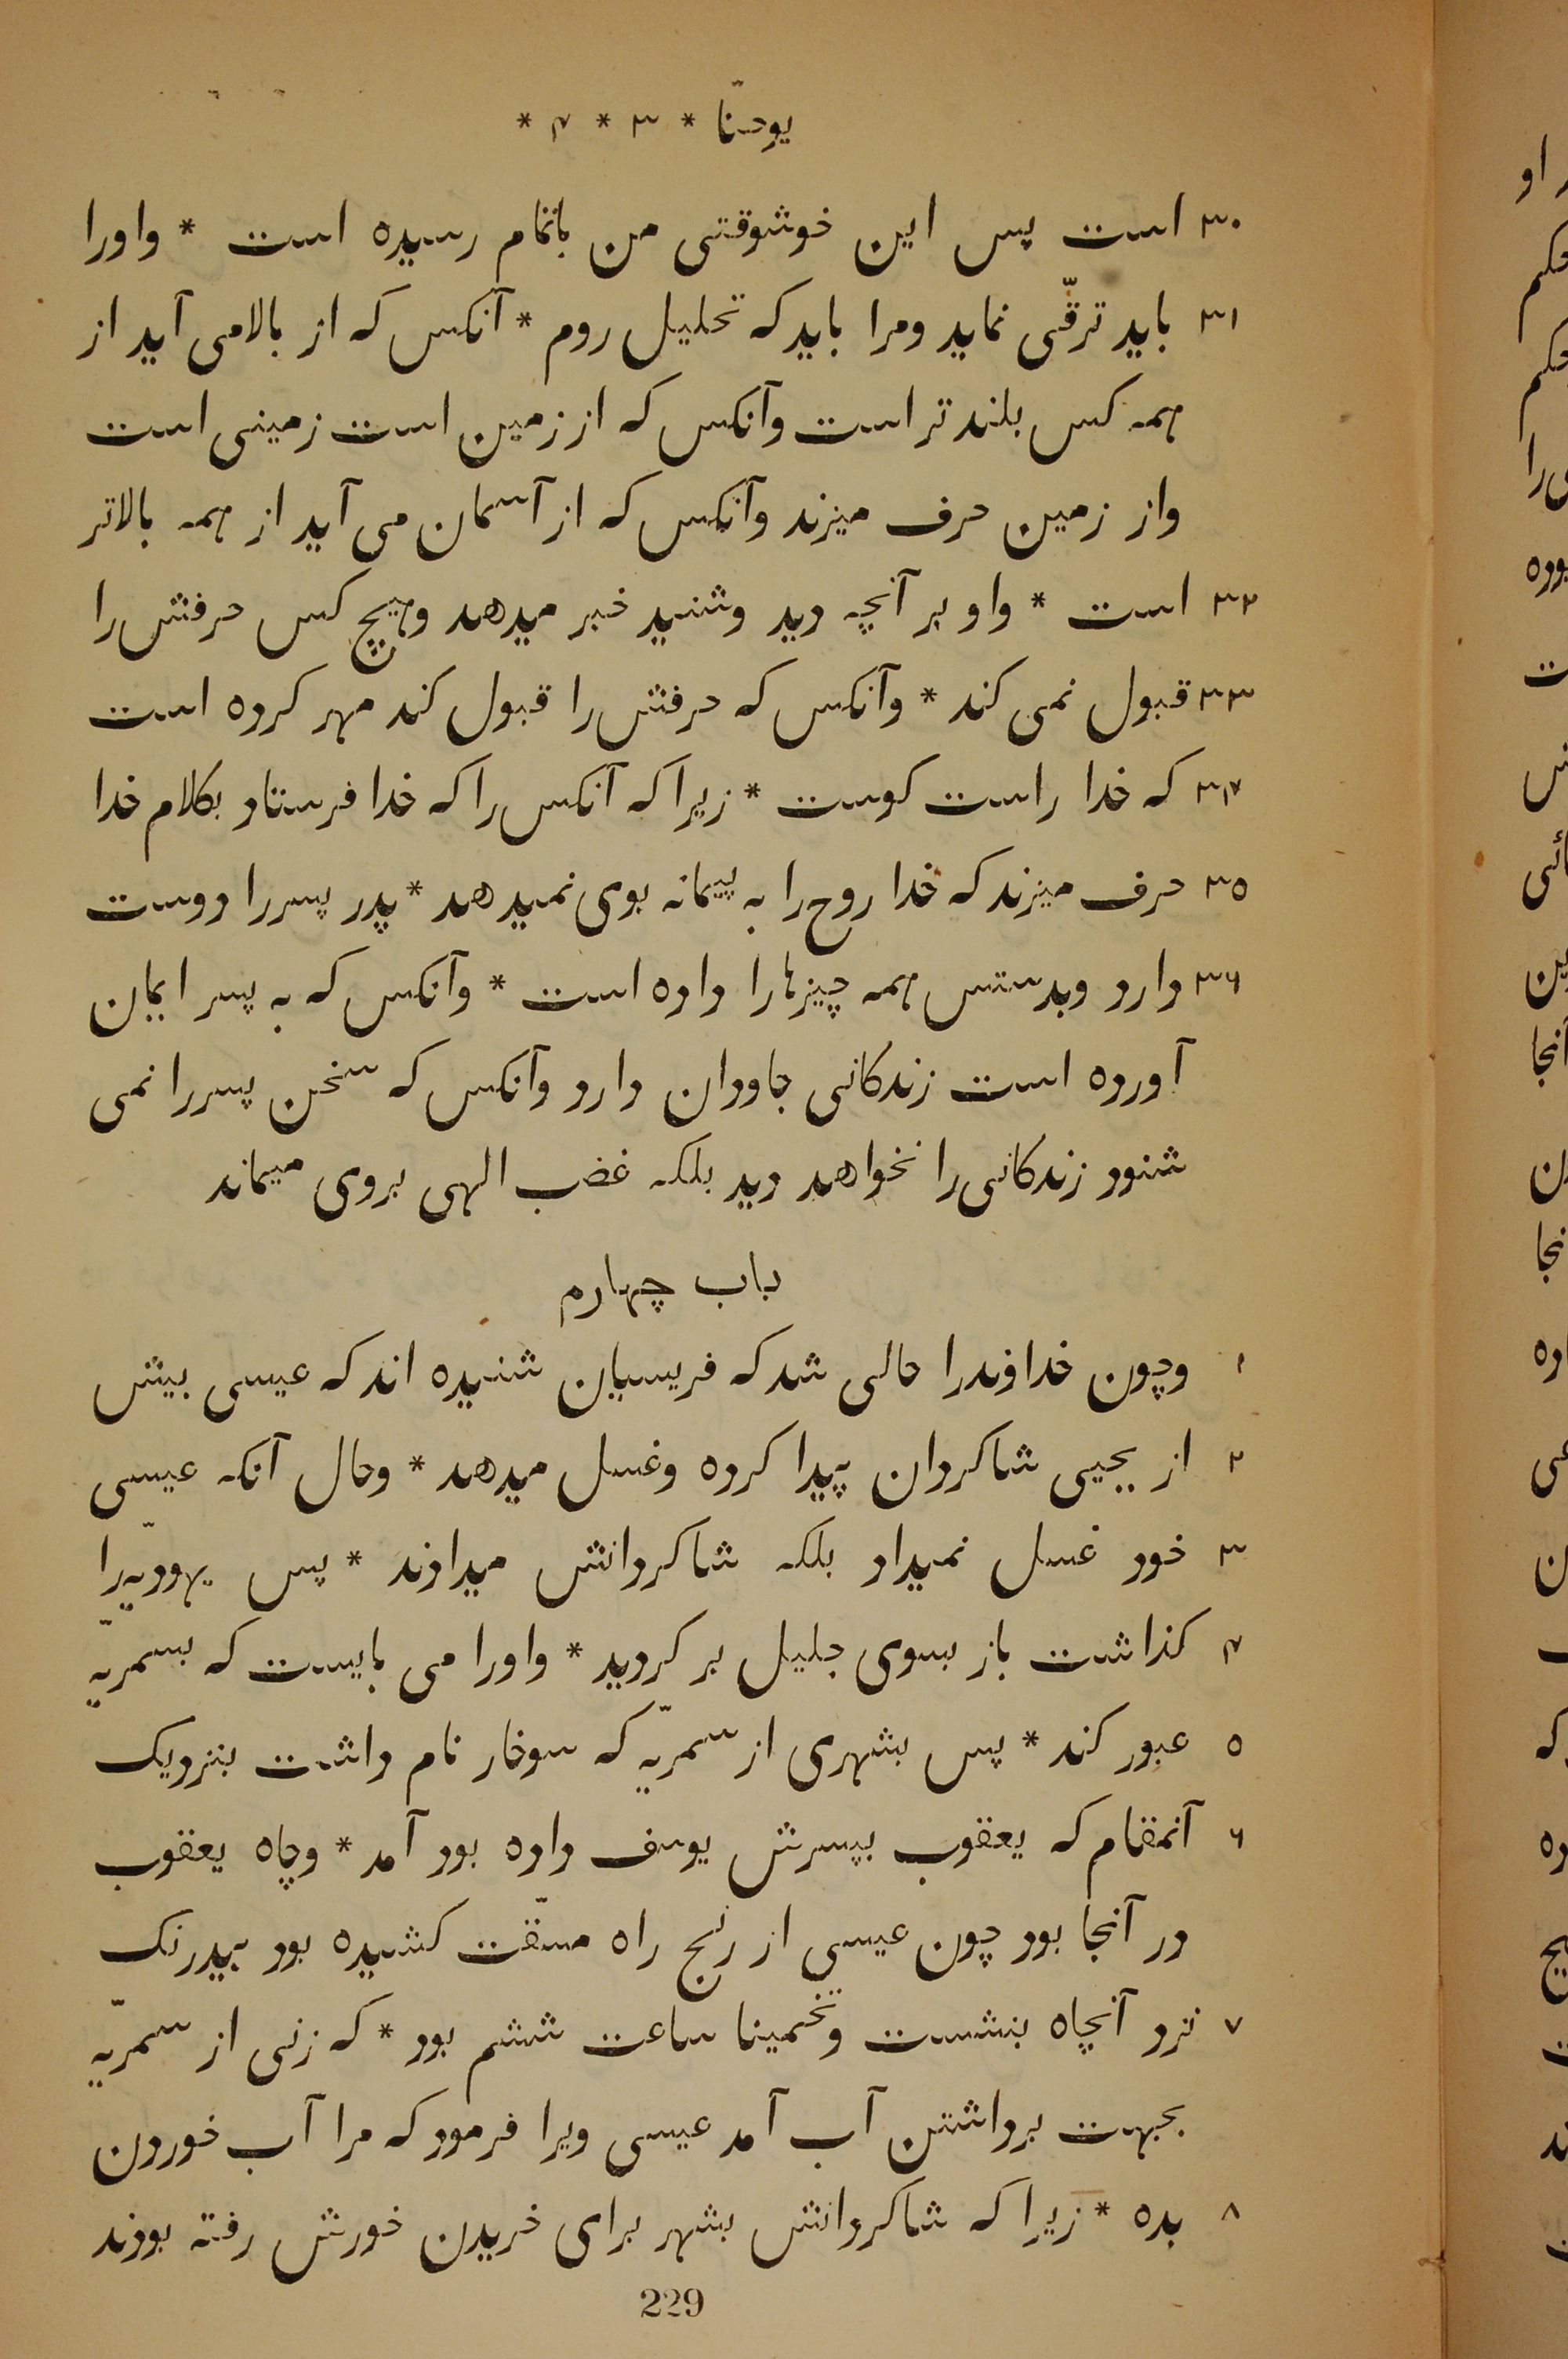 یوحنّا * ۳ * ۴ *
۳۰ است پس این خوشوقتی من باتمام رسیده است * واورا
۳۱ باید ترقّی نماید ومرا باید که تحلیل روم * آنکس که از بالا می آید از
همه کس بلند تر است وآنکس که از زمین است زمینی است
واز زمین حرف میزند وآنکس که از آسمان می آید از همه بالاتر
۳۲ است * واو بر آنچه دید وشنید خبر میدهد وهیچ کس حرفش را
۳۳ قبول نمی کند * وآنکس که حرفش را قبول کند مهر کرده است
۳۴ که خدا راست کوست * زیرا که آنکس را که خدا فرستاد بکلام خدا
۳۵ حرف میزند که خدا روح را به پیمانه بوی نمیدهد * پدر پسررا دوست
۳۶ دارد وبدستش همه چیزهارا داده است * وآنکس که به پسر ایمان
آورده است زندکانی جاودان دارد وآنکس که سخن پسررا نمی
شنود زندکانی را نخواهد دید بلکه غضب الهی بروی میماند
باب چهارم
۱ وچون خداوندرا حالی شد که فریسیان شنیده اند که عیسی بیش
۲ از یحیی شاکردان پیدا کرده وغسل میدهد * وحال آنکه عیسی
۳ خود غسل نمیداد بلکه شاکردانش میدادند * پس یهودیّه‌را
۴ کذاشت باز بسوی جلیل بر کردید * واورا می بایست که بسمریّه
۵ عبور کند * پس بشهری از سمریّه که سوخار نام داشت بنزدیک
۶ آنمقام که یعقوب بپسرش یوسف داده بود آمد * وچاه یعقوب
در آنجا بود چون عیسی از رنج راه مشقّت کشیده بود بیدرنک
۷ نزد آنچاه بنشست وتخمینا ساعت ششم بود * که زنی از سمریّه
بجهت برداشتن آب آمد عیسی ویرا فرمود که مرا آب خوردن
۸ بده * زیرا که شاکردانش بشهر برای خریدن خورش رفته بودند
229